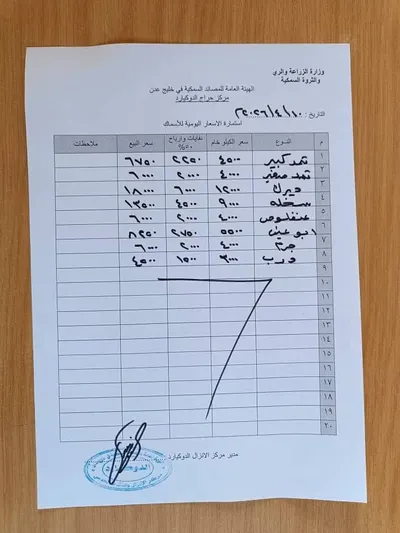 وزارة الزراعة والري
والثروة السمكية
الهيئة العامة للمصائد السمكية في خليج عدن
مركز حراج الدوكيارد
التاريخ : ٢٠٢٦/٤/١٠
استمارة الاسعار اليومية للأسماك
م النوع سعر الكيلو خام نفايات وارباح ٥٠% سعر البيع ملاحظات
١ ثمد كبير ٤٥٠٠ ٢٢٥٠ ٦٧٥٠
٢ ثمد صغير ٤٠٠٠ ٢٠٠٠ ٦٠٠٠
٣ ديرك ١٢٠٠٠ ٦٠٠٠ ١٨٠٠٠
٤ سخله ٩٠٠٠ ٤٥٠٠ ١٣٥٠٠
٥ عنفلوص ٤٠٠٠ ٢٠٠٠ ٦٠٠٠
٦ ابو عين ٥٥٠٠ ٢٧٥٠ ٨٢٥٠
٧ جرم ٤٠٠٠ ٢٠٠٠ ٦٠٠٠
٨ درب ٣٠٠٠ ١٥٠٠ ٤٥٠٠
٩
١٠
١١
١٢
١٣
١٤
١٥
١٦
١٧
١٨
١٩
٢٠
مدير مركز الانزال الدوكيارد
الدوكيارد